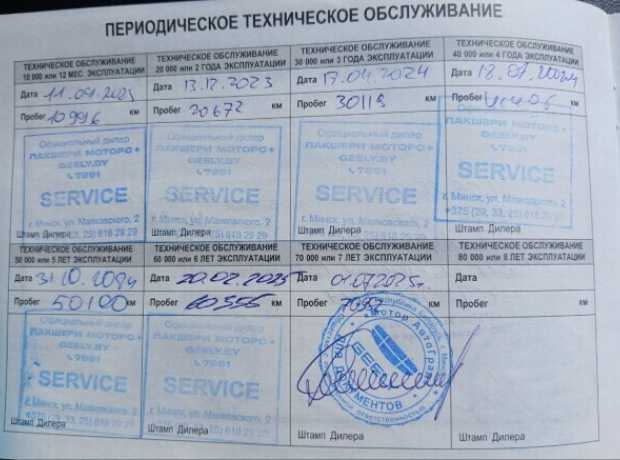 ПЕРИОДИЧЕСКОЕ ТЕХНИЧЕСКОЕ ОБСЛУЖИВАНИЕ
ТЕХНИЧЕСКОЕ ОБСЛУЖИВАНИЕ
10 000 или 12 МЕС. ЭКСПЛУАТАЦИИ
Дата
Пробег 10996 км
Официальный дилер
ЛАКШЕРИ МОТОРС+
GEELY.BY
7991
SERVICE
г. Минск, ул. Маяковского, 2
Штамп Дилера
ТЕХНИЧЕСКОЕ ОБСЛУЖИВАНИЕ
20 000 или 2 ГОДА ЭКСПЛУАТАЦИИ
Дата 13.12.2023
Пробег 20672 км
Официальный дилер
ЛАКШЕРИ МОТОРС+
GEELY.BY
7991
SERVICE
г. Минск, ул. Маяковского, 2
Штамп Дилера
ТЕХНИЧЕСКОЕ ОБСЛУЖИВАНИЕ
30 000 или 3 ГОДА ЭКСПЛУАТАЦИИ
Дата 17.04.2024
Пробег 30119 км
Официальный дилер
ЛАКШЕРИ МОТОРС+
GEELY.BY
7991
SERVICE
г. Минск, ул. Маяковского, 2
Штамп Дилера
ТЕХНИЧЕСКОЕ ОБСЛУЖИВАНИЕ
40 000 или 4 ГОДА ЭКСПЛУАТАЦИИ
Дата 18.07.2024
Пробег км
Официальный дилер
ЛАКШЕРИ МОТОРС+
GEELY.BY
7991
SERVICE
г. Минск, ул. Маяковского, 2
+375 (29, 33, 25) 619 29 29
Штамп Дилера
ТЕХНИЧЕСКОЕ ОБСЛУЖИВАНИЕ
50 000 или 5 ЛЕТ ЭКСПЛУАТАЦИИ
Дата 31.10.2024
Пробег 50100 км
Официальный дилер
ЛАКШЕРИ МОТОРС+
GEELY.BY
7991
SERVICE
г. Минск, ул. Маяковского, 2
Штамп Дилера
ТЕХНИЧЕСКОЕ ОБСЛУЖИВАНИЕ
60 000 или 6 ЛЕТ ЭКСПЛУАТАЦИИ
Дата 20.02.2025
Пробег 60355 км
Официальный дилер
ЛАКШЕРИ МОТОРС+
GEELY.BY
7991
SERVICE
г. Минск, ул. Маяковского, 2
Штамп Дилера
ТЕХНИЧЕСКОЕ ОБСЛУЖИВАНИЕ
70 000 или 7 ЛЕТ ЭКСПЛУАТАЦИИ
Дата 01.07.2025г.
Пробег км
ДЛЯ ДОКУМЕНТОВ
Штамп Дилера
ТЕХНИЧЕСКОЕ ОБСЛУЖИВАНИЕ
80 000 или 8 ЛЕТ ЭКСПЛУАТАЦИИ
Дата
Пробег км
Штамп Дилера